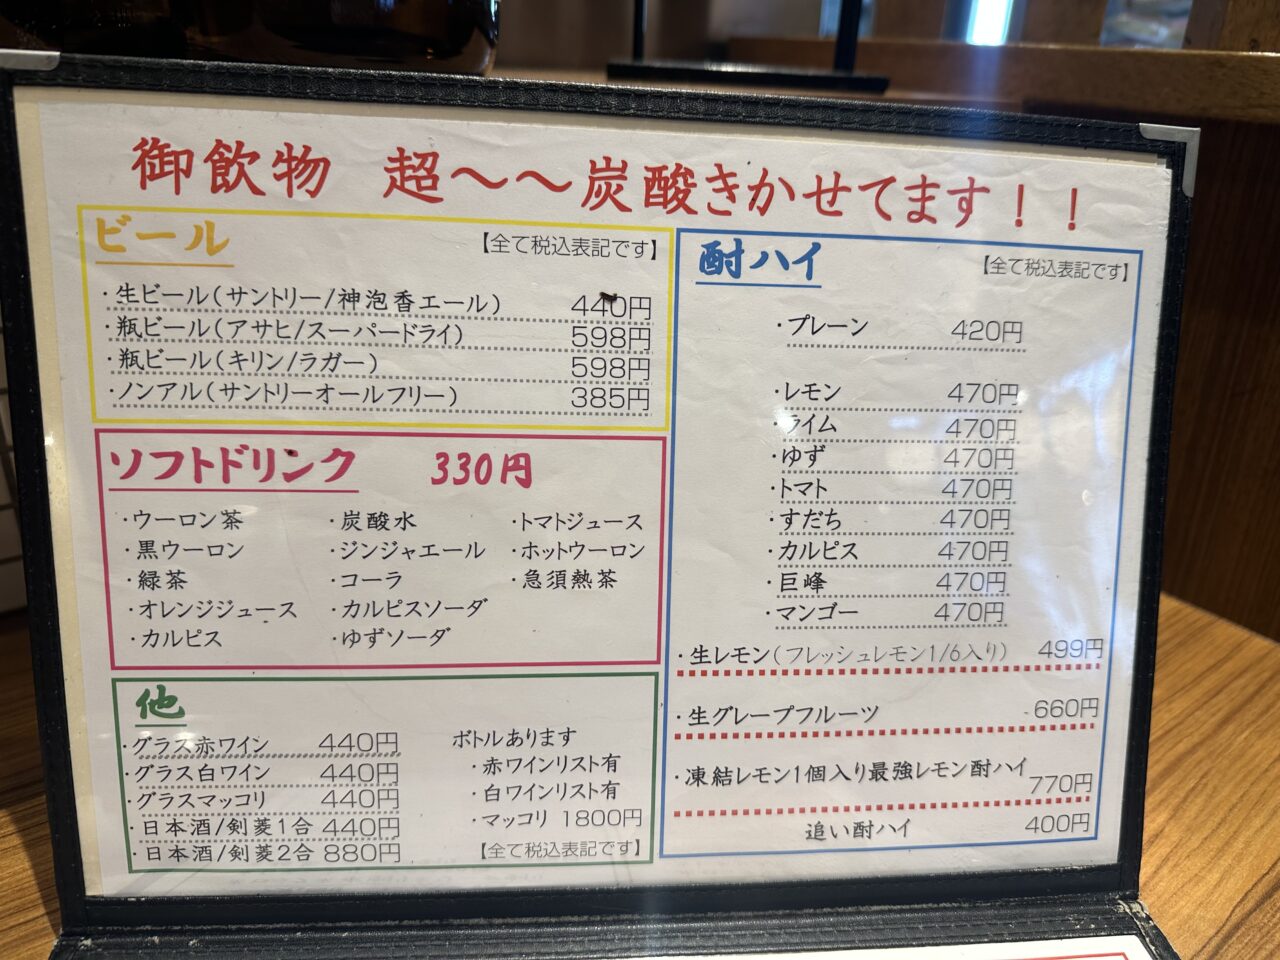 御飲物 超〜〜炭酸きかせてます！！
ビール
【全て税込表記です】
・生ビール(サントリー/神泡香エール) 440円
・瓶ビール(アサヒ/スーパードライ) 598円
・瓶ビール(キリン/ラガー) 598円
・ノンアル(サントリーオールフリー) 385円
ソフトドリンク 330円
・ウーロン茶
・黒ウーロン
・緑茶
・オレンジジュース
・カルピス
・炭酸水
・ジンジャエール
・コーラ
・カルピスソーダ
・ゆずソーダ
・トマトジュース
・ホットウーロン
・急須熱茶
他
・グラス赤ワイン 440円
・グラス白ワイン 440円
・グラスマッコリ 440円
・日本酒/剣菱1合 440円
・日本酒/剣菱2合 880円
ボトルあります
・赤ワインリスト有
・白ワインリスト有
・マッコリ 1800円
【全て税込表記です】
酎ハイ
【全て税込表記です】
・プレーン 420円
・レモン 470円
・ライム 470円
・ゆず 470円
・トマト 470円
・すだち 470円
・カルピス 470円
・巨峰 470円
・マンゴー 470円
・生レモン(フレッシュレモン1/6入り) 499円
・生グレープフルーツ 660円
・凍結レモン1個入り最強レモン酎ハイ 770円
追い酎ハイ 400円